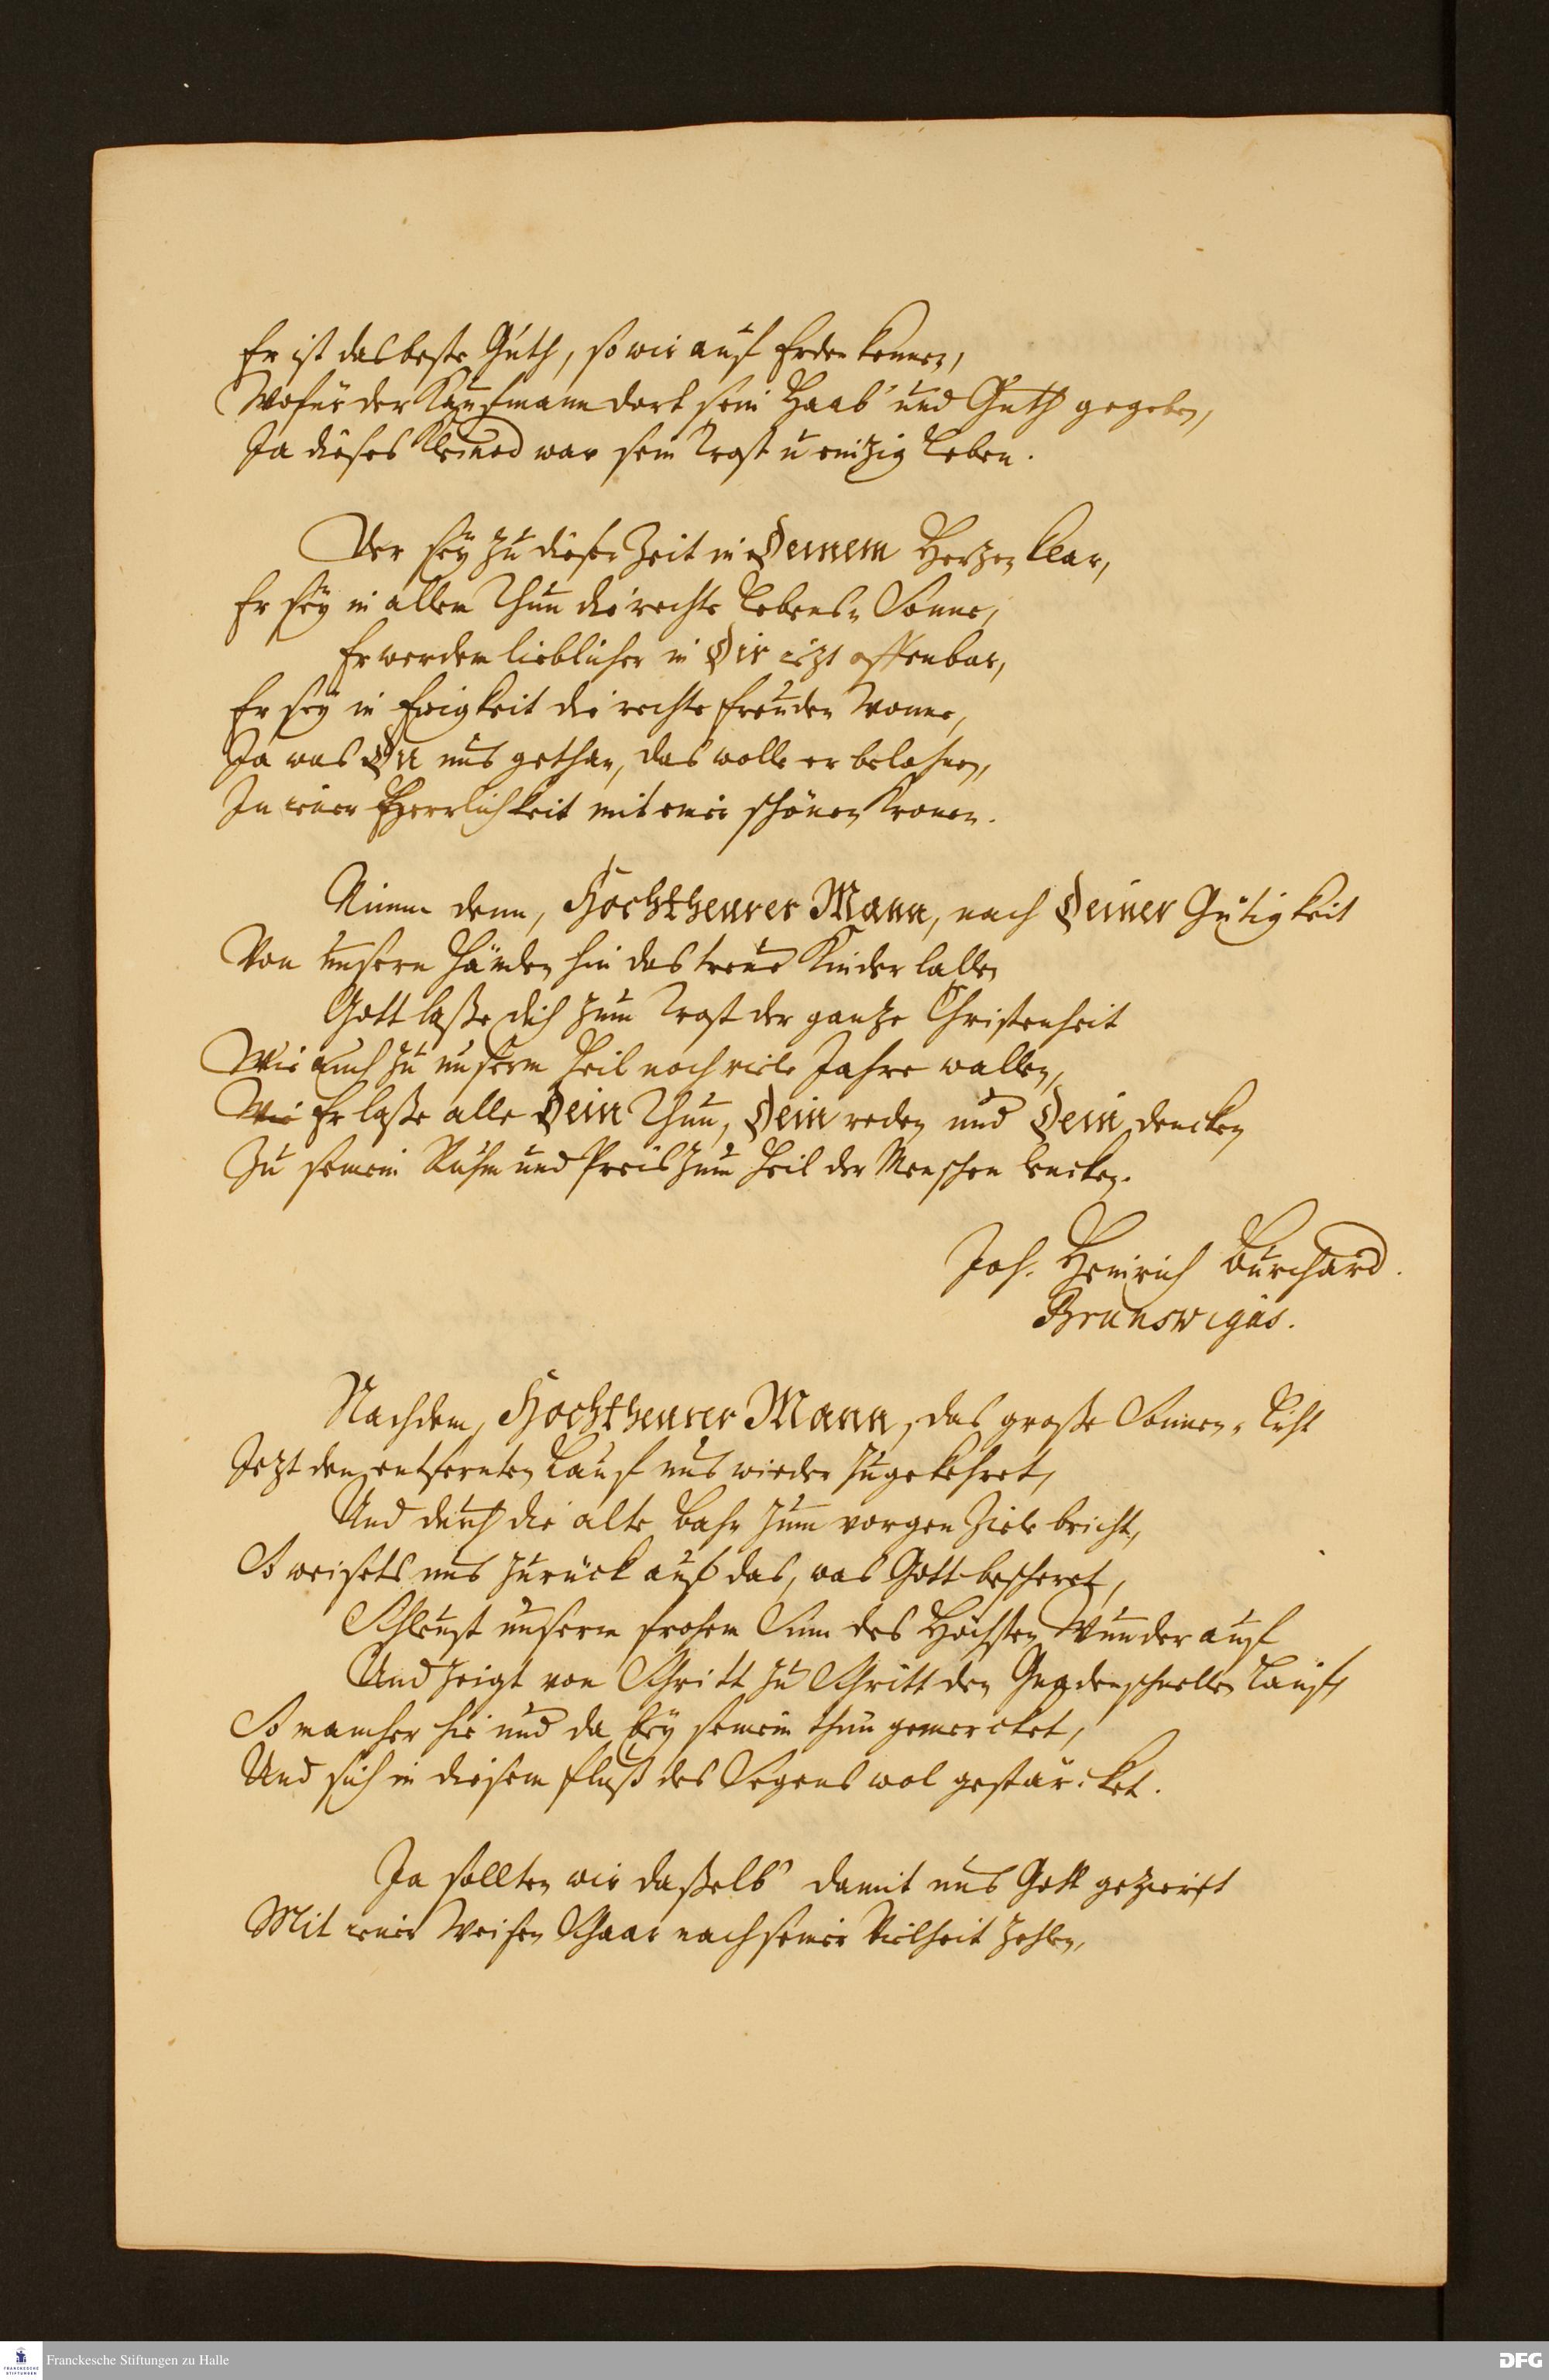 Er ist das beste Guth, so wir auf Erden kennen,
Wofür der Kaufmann dort sein Haab' und Guth gegeben,
Ja dieses Kleinod war sein Trost u einzig Leben.
Der sey zu dieser Zeit in Deinem Herzen klar,
Er sey in allem Thun die rechte Lebens-Sonne,
Er werde lieblicher in Dir izt offenbar,
Er sey in Ewigkeit die rechte Freuden Wonne,
Ja was Du uns gethan, das wolle er belohnen,
In iener Herrlichkeit mit einer schönen Kronen.
Nimm denn, Hochtheurer Mann, nach Deiner Gütigkeit
Von unsern Händen hin das treue Kinder lallen
Gott laße dich zum Trost der ganzen Christenheit
Wie auch zu unserm Heil noch viele Jahre wallen,
Wie Er laße alle Dein Thun, Dein reden und Dein dencken
Zu seinem Ruhm und Preis zum Heil der Menschen lencken.
Joh. Heinrich Burchard.
Brunswigas.
Nachdem, Hochtheurer Mann, das große Sonnen-Licht
Jezt den entfernten Lauf uns wieder zugekehret,
Und durch die alte Bahn zum vorgen Ziele bricht,
So weisets uns zurück auf das, was Gott bescheret,
Schleust unserm frohem Sinn des Höchsten Wunder auf
Und zeigt von Schritt zu Schritt den Gnadenschnellen Lauf,
So mancher hie und da bey seinem thun gemercket,
Und sich in diesem Fluß des Segens wol gestärcket.
Ja sollten wir daßelb' damit uns Gott geziert
Mit iener Weisen Schaar nach seiner Vielheit zehlen,
Franckesche Stiftungen zu Halle
FRANCKESCHE
STIFTUNGEN
DFG